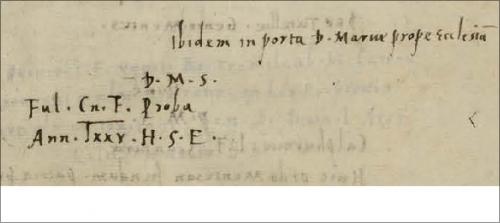 Ibidem in porta D. Mariae prope Ecclesiā
D. M. S.
Ful. Cn. F. Proba
Ann. Ixxv. H. S. E.